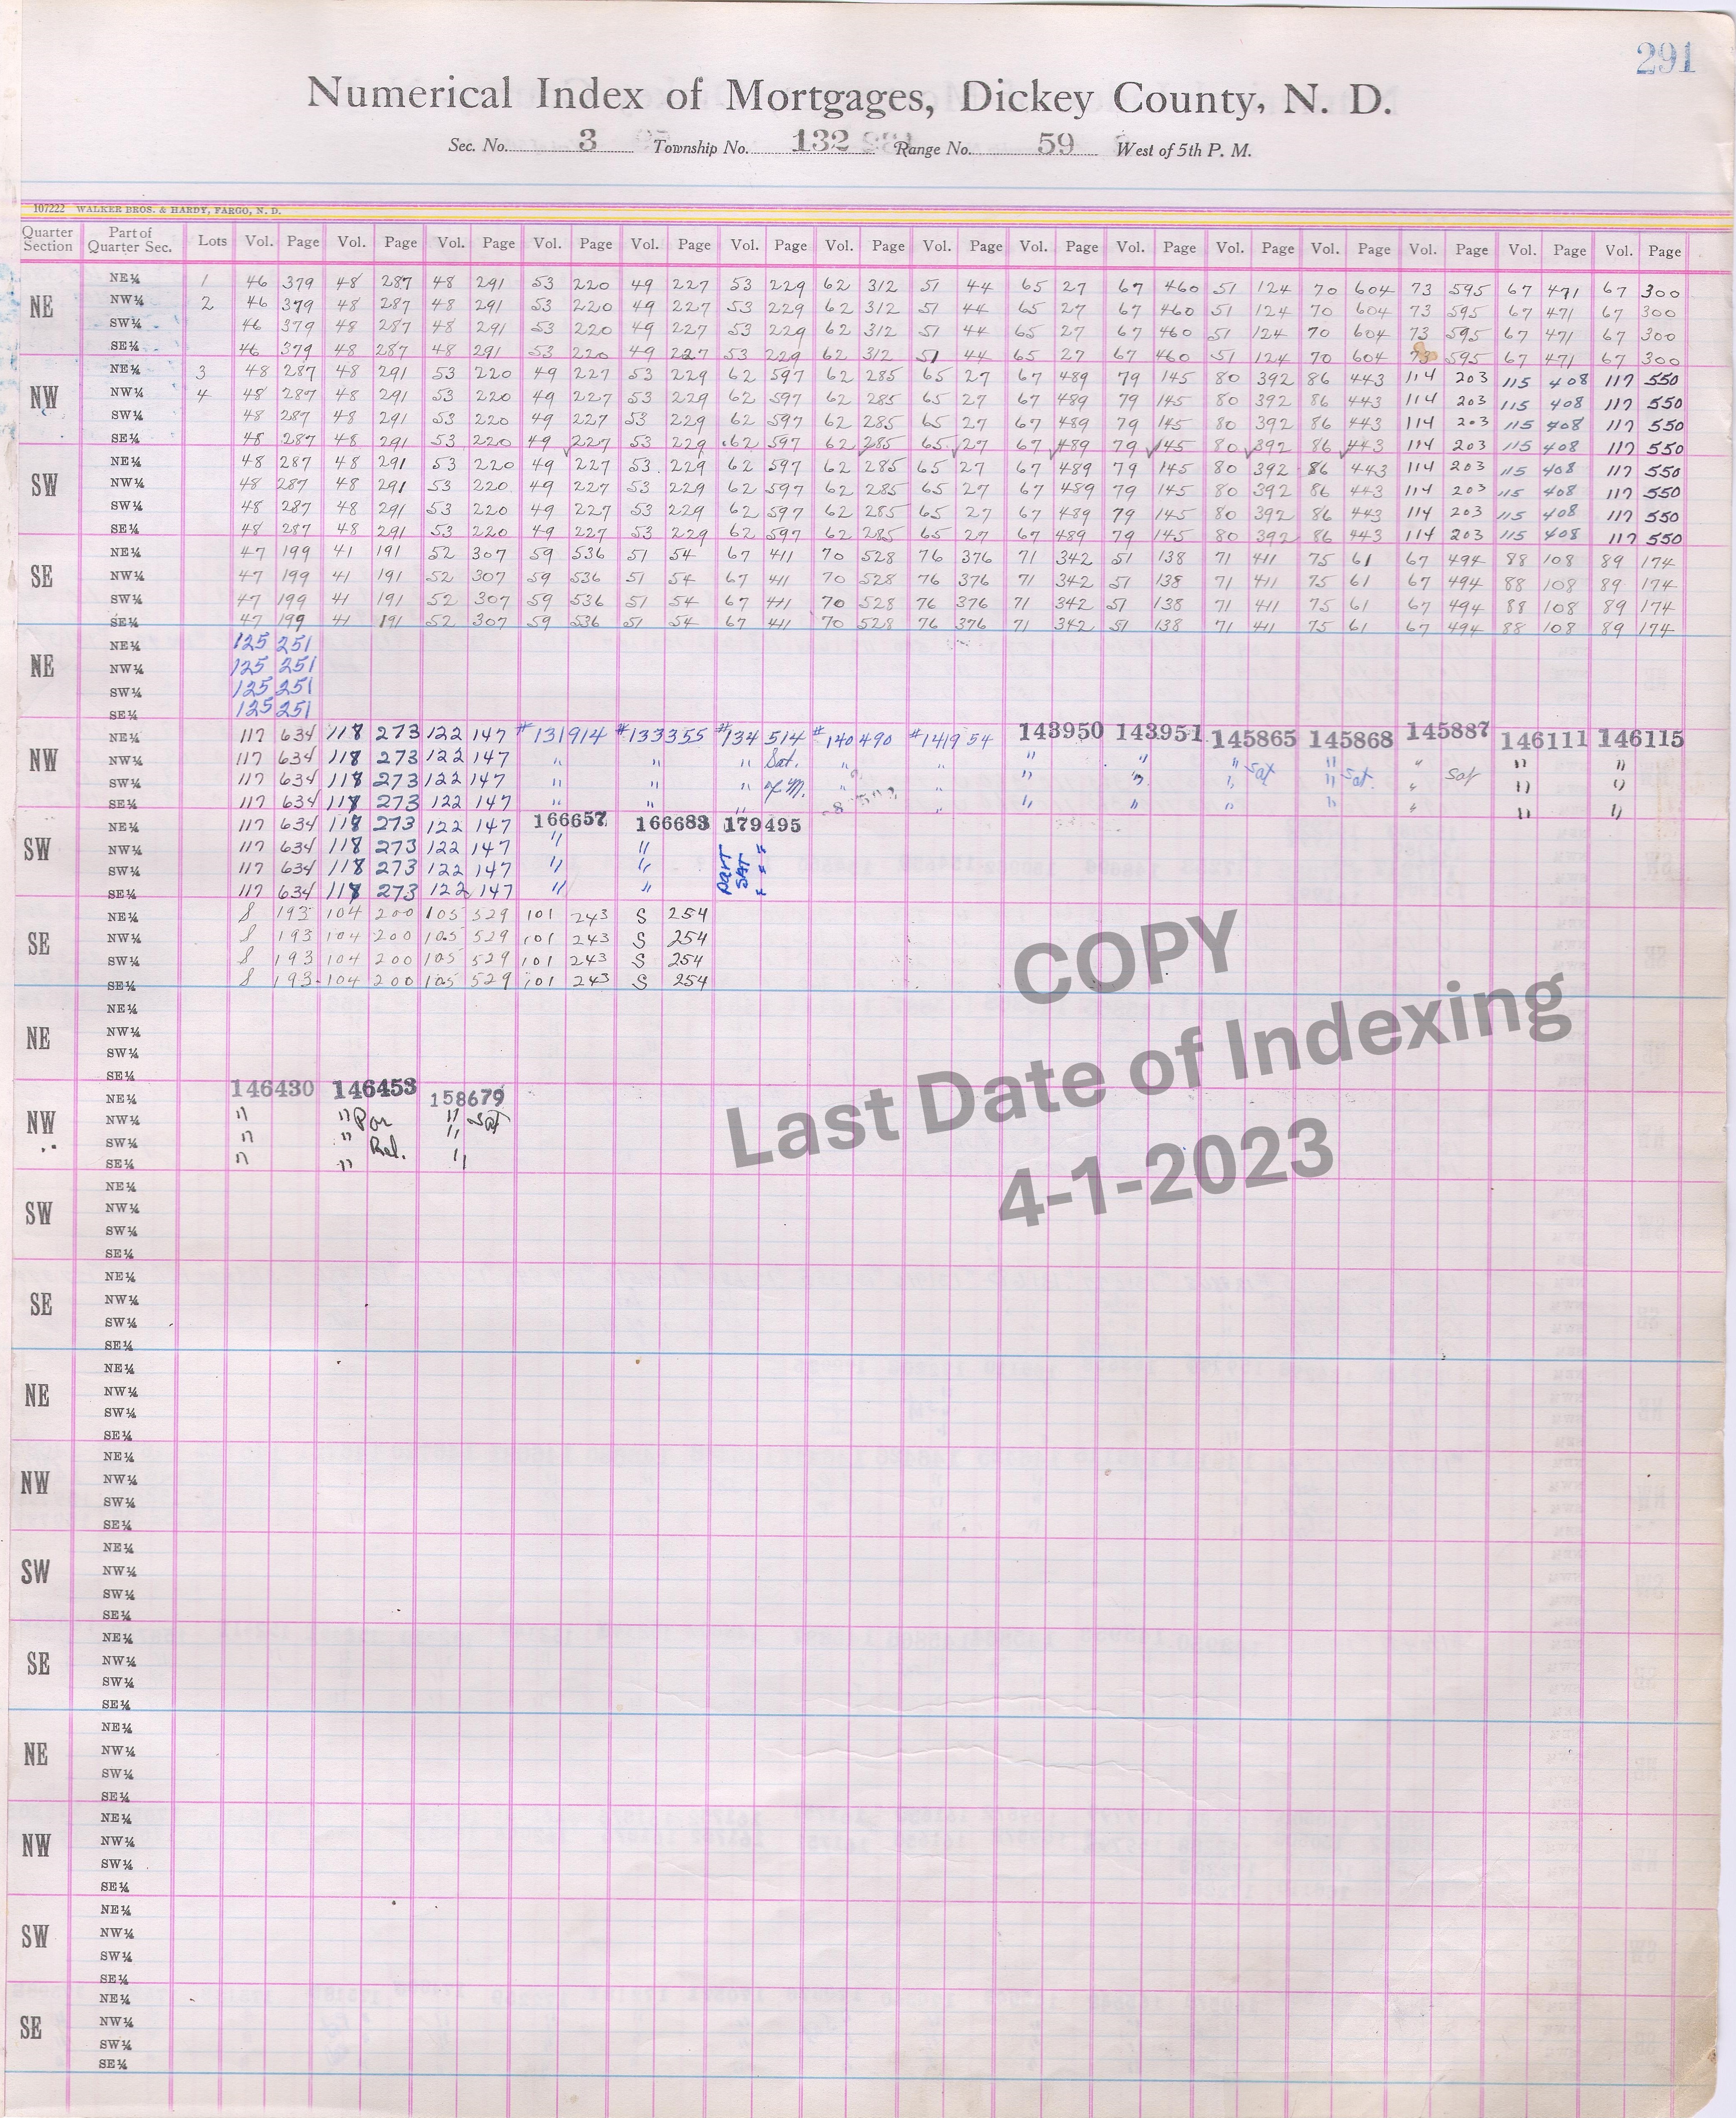 291
Numerical Index of Mortgages, Dickey County, N. D.
Sec. No. 3 Township No. 132 Range No. 59 West of 5th P. M.
107222 WALKER BROS. & HARDY, FARGO, N. D.
Quarter Section Part of Quarter Sec. Lots Vol. Page Vol. Page Vol. Page Vol. Page Vol. Page Vol. Page Vol. Page Vol. Page Vol. Page Vol. Page Vol. Page Vol. Page Vol. Page Vol. Page Vol. Page
NE
NE¼ 1 46 379 48 287 48 291 53 220 49 227 53 229 62 312 51 44 65 27 67 460 51 124 70 604 73 595 67 471 67 300
NW¼ 2 46 379 48 287 48 291 53 220 49 227 53 229 62 312 51 44 65 27 67 460 51 124 70 604 73 595 67 471 67 300
SW¼ 46 379 48 287 48 291 53 220 49 227 53 229 62 312 51 44 65 27 67 460 51 124 70 604 73 595 67 471 67 300
SE¼ 46 379 48 287 48 291 53 220 49 227 53 229 62 312 51 44 65 27 67 460 51 124 70 604 73 595 67 471 67 300
NW
NE¼ 3 48 287 48 291 53 220 49 227 53 229 62 597 62 285 65 27 67 489 79 145 80 392 86 443 114 203 115 408 117 550
NW¼ 4 48 287 48 291 53 220 49 227 53 229 62 597 62 285 65 27 67 489 79 145 80 392 86 443 114 203 115 408 117 550
SW¼ 48 287 48 291 53 220 49 227 53 229 62 597 62 285 65 27 67 489 79 145 80 392 86 443 114 203 115 408 117 550
SE¼ 48 287 48 291 53 220 49 227 53 229 62 597 62 285 65 27 67 489 79 145 80 392 86 443 114 203 115 408 117 550
SW
NE¼ 48 287 48 291 53 220 49 227 53 229 62 597 62 285 65 27 67 489 79 145 80 392 86 443 114 203 115 408 117 550
NW¼ 48 287 48 291 53 220 49 227 53 229 62 597 62 285 65 27 67 489 79 145 80 392 86 443 114 203 115 408 117 550
SW¼ 48 287 48 291 53 220 49 227 53 229 62 597 62 285 65 27 67 489 79 145 80 392 86 443 114 203 115 408 117 550
SE¼ 48 287 48 291 53 220 49 227 53 229 62 597 62 285 65 27 67 489 79 145 80 392 86 443 114 203 115 408 117 550
SE
NE¼ 47 199 41 191 52 307 59 536 51 54 67 411 70 528 76 376 71 342 51 138 71 411 75 61 67 494 88 108 89 174
NW¼ 47 199 41 191 52 307 59 536 51 54 67 411 70 528 76 376 71 342 51 138 71 411 75 61 67 494 88 108 89 174
SW¼ 47 199 41 191 52 307 59 536 51 54 67 411 70 528 76 376 71 342 51 138 71 411 75 61 67 494 88 108 89 174
SE¼ 47 199 41 191 52 307 59 536 51 54 67 411 70 528 76 376 71 342 51 138 71 411 75 61 67 494 88 108 89 174
NE
NE¼ 125 251
NW¼ 125 251
SW¼ 125 251
SE¼ 125 251
NW
NE¼ 117 634 118 273 122 147 #131914 #133355 #134514 #140490 #141954 143950 143951 145865 145868 145887 146111 146115
NW¼ 117 634 118 273 122 147 " " " Sat. " " " " " Sat " Sat. " Sat " "
SW¼ 117 634 118 273 122 147 " " " of M. " " " " " " " " "
SE¼ 117 634 118 273 122 147 " " " " " " " " " " " "
SW
NE¼ 117 634 118 273 122 147 166657 166683 179495
NW¼ 117 634 118 273 122 147 " " Part SAT "
SW¼ 117 634 118 273 122 147 " " "
SE¼ 117 634 118 273 122 147 " " "
SE
NE¼ S 193 104 200 105 529 101 243 S 254
NW¼ S 193 104 200 105 529 101 243 S 254
SW¼ S 193 104 200 105 529 101 243 S 254
SE¼ S 193 104 200 105 529 101 243 S 254
COPY
Last Date of Indexing
4-1-2023
NE
NE¼
NW¼
SW¼
SE¼
NW
NE¼ 146430 146453 158679
NW¼ " " Par " Sat
SW¼ " " Rel. "
SE¼ " " "
SW
NE¼
NW¼
SW¼
SE¼
SE
NE¼
NW¼
SW¼
SE¼
NE
NE¼
NW¼
SW¼
SE¼
NW
NE¼
NW¼
SW¼
SE¼
SW
NE¼
NW¼
SW¼
SE¼
SE
NE¼
NW¼
SW¼
SE¼
NE
NE¼
NW¼
SW¼
SE¼
NW
NE¼
NW¼
SW¼
SE¼
SW
NE¼
NW¼
SW¼
SE¼
SE
NE¼
NW¼
SW¼
SE¼